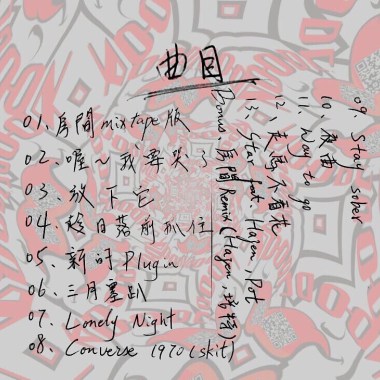 曲目
01. 房間 mixtape 版
02. 喔～我要哭了
03. 放下它
04. 日落前抓住
05. 新的 Plugin
06. 三月
07. Lonely Night
08. Converse 1970 (skit)
09. Stay sober
10. 夜曲
11. Way to go
12. 走馬不看花
13. Star feat. Hazen, Dot
Bonus. 房間 Remix (Hazen,